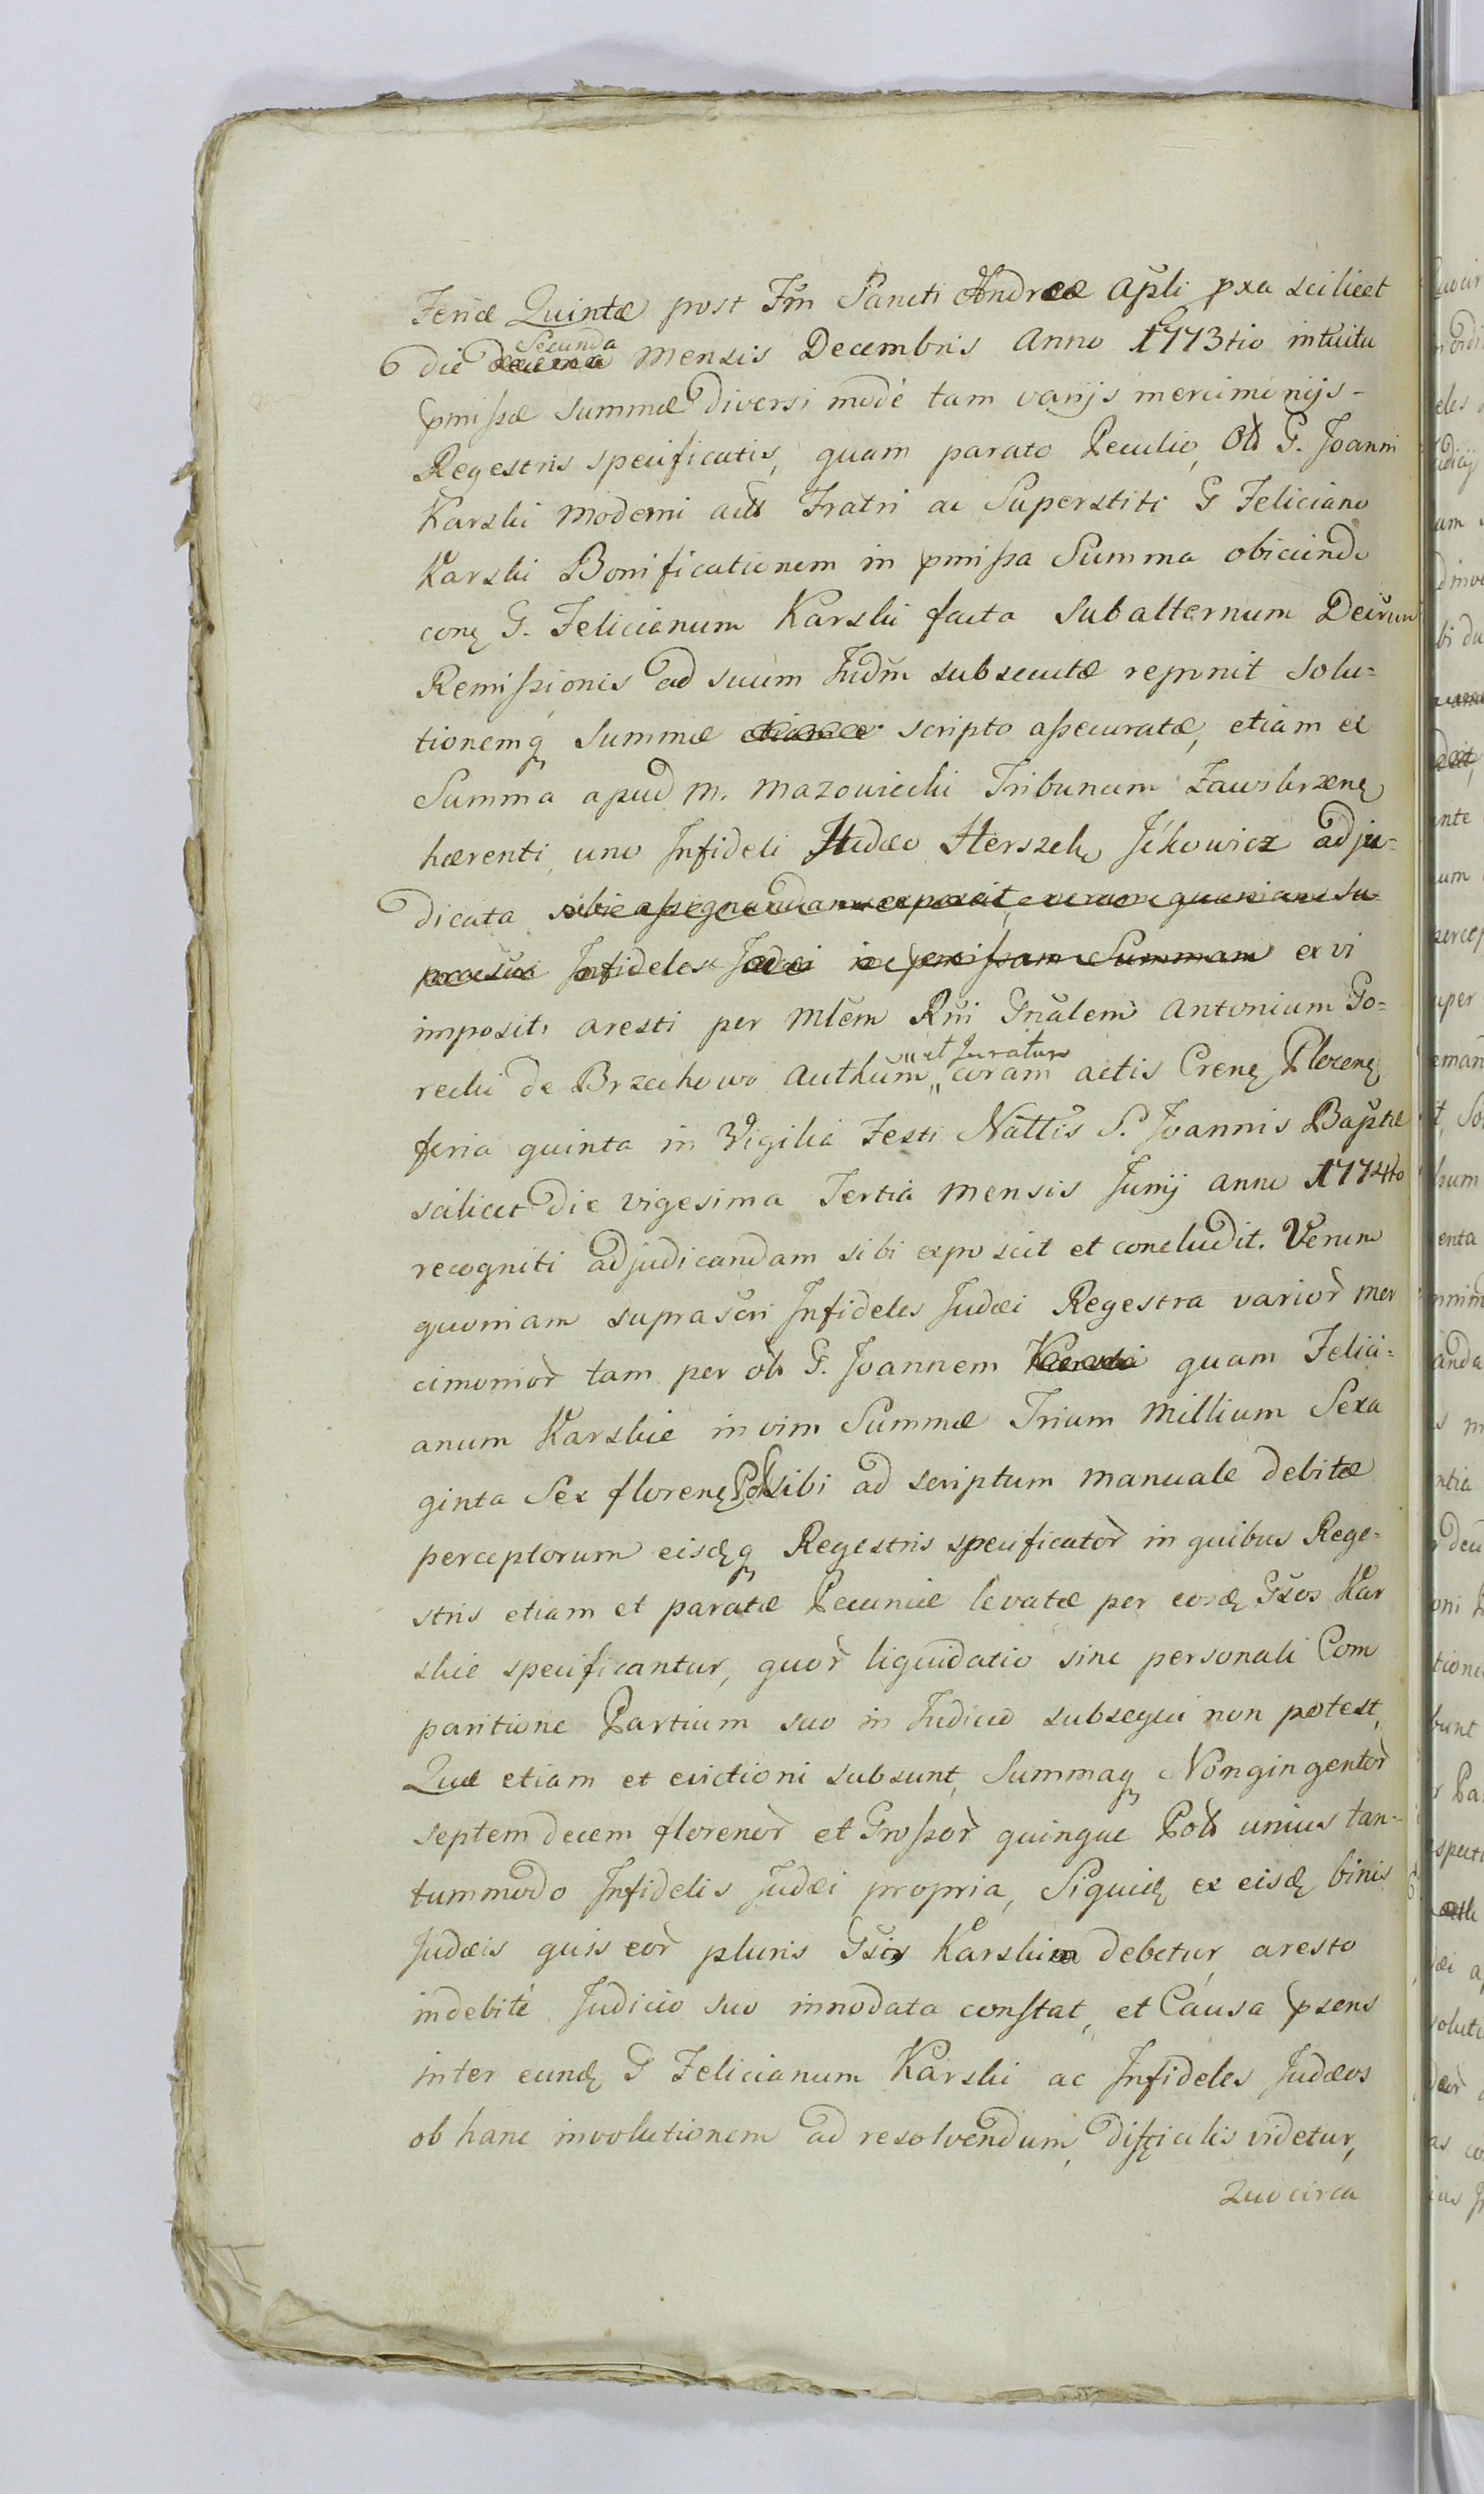 Feriæ Quintæ post Fm̃ Sancti Andreæ Apl̃i pxa scilicet
die Secunda mensis Decembris Anno 1773tio intuitu
pmißæ summæ diversi modè tam varijs mercimonijs-
Regestris specificatis, quam parato Peculio, Olȷ G. Joanni
Karski moderni actȷ Fratri ac Superstiti G Feliciano
Karski Bonificationem in pmißa Summa obiciendo
conę G. Felicianum Karski facta Subalternum Decrum
Remißionis ad suum Judm̃ subsecutæ reponit solu=
tionemq summæ scripto aßecuratæ, etiam ex
Summa apud M. Mazowiecki Tribunum Zawskrzenę
hærenti, uno Infideli Judæo Herszek Ickowicz adju=
dicata sibi aßignandam exposcit, verum quoniam su=
prascri Infideles Judæi in pmißam Summam ex vi
impositi aresti per Mlem̃ Rm̃i Gnãlem Antonium Go=
recki de Brzechowo Authum̃ „et Juratum„ coram actis Crenę Plocenę
feria quinta in Vigilia Festi Nattis S. Joannis Baptæ
scilicet die vigesima Tertia mensis Junij anno 1774to
recogniti adjudicandam sibi exposcit et concludit. Verum
quoniam suprascri Infideles Judæi Regestra varior̀ mer
cimonior̀ tam per olȷ G. Joannem Karski quam Felici=
anum Karskie in vim Summæ Trium Millium Sexa
ginta Sex florenę Pol sibi ad scriptum manuale debitæ
perceptorum eisdęq Regestris specificator̀ in quibus Rege=
stris etiam et paratæ Pecuniæ levatæ per eosdę Gsos Kar
skie specificantur, quor̀ liquidatio sine personali Com
paritione Partium suo in Judicio subsequi non potest,
Quæ etiam et evictioni subsunt, Summaq Nongingentor̀
septem decem florenor̀ et Großor̀ quinque Polȷ unius tan=
tummodo Infidelis Judæi propria, Siquidę ex eisdę binis
Judæis quis eor̀ pluris Gsis Karskim debetur, aresto
indebitè Judicio suo innodata constat, et Causa psens
inter eundę G Felicianum Karski ac Infideles Judæos
ob hanc involutionem ad resolvendum, difficilis videtur,
Quocirca